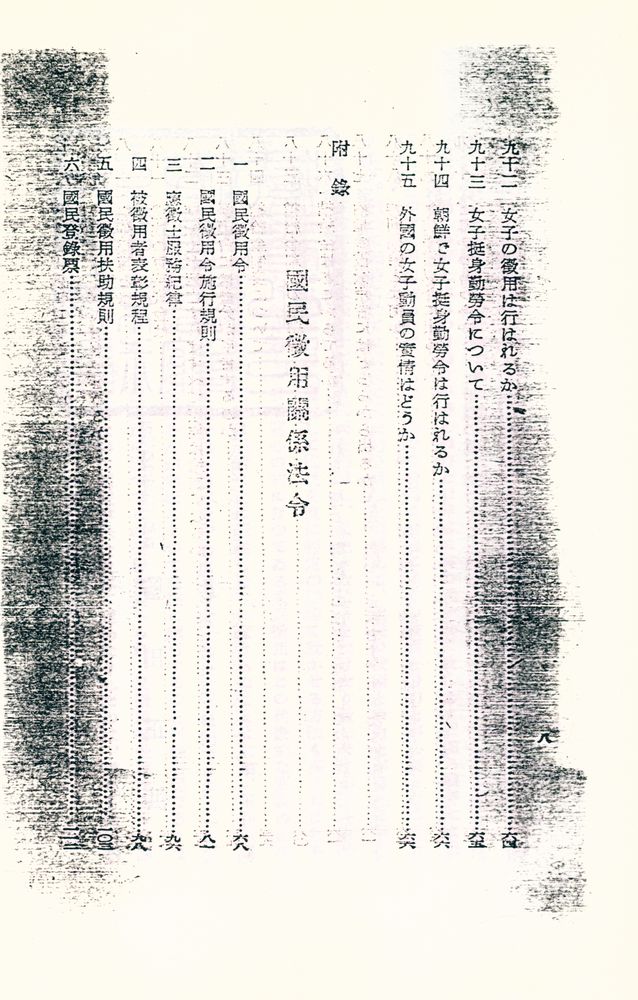 九十二 女子の徵用は行はれるか……六四
九十三 女子挺身勤勞令について……六五
九十四 朝鮮で女子挺身勤勞令は行はれるか……六六
九十五 外國の女子動員の實情はどうか……六六
附錄
國民徵用關係法令
一 國民徵用令……六八
二 國民徵用令施行規則……八一
三 應徵士服務紀律……九六
四 被徵用者表彰規程……九八
五 國民徵用扶助規則……一〇三
六 國民登錄票
八